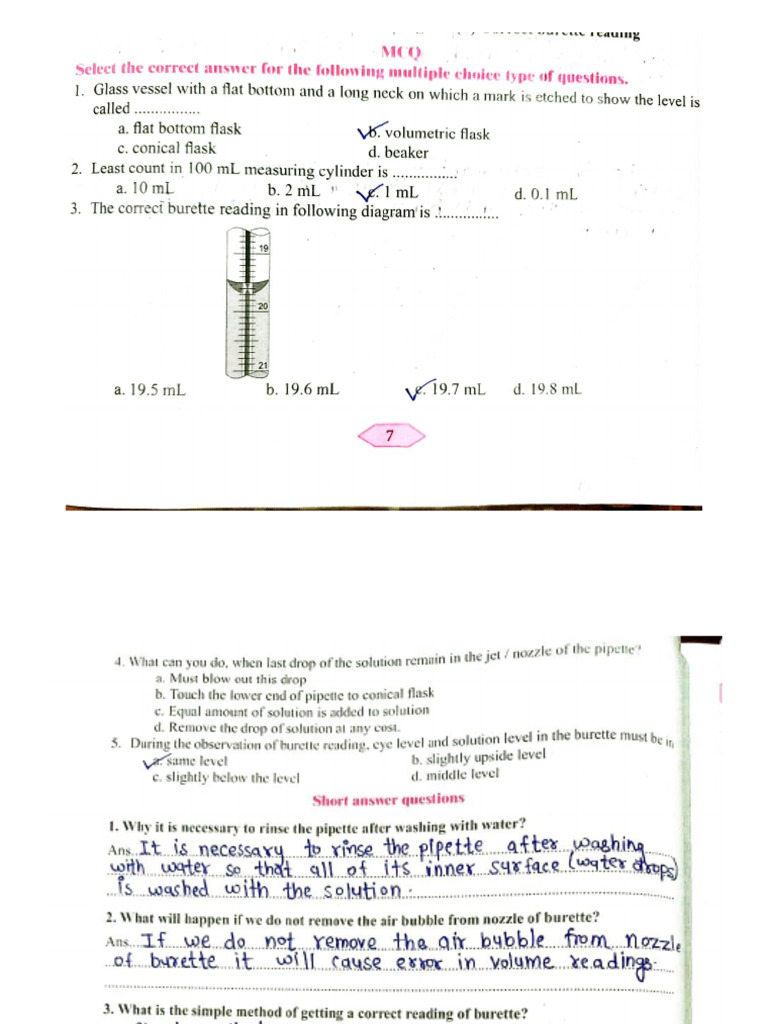 burette reading
MCQ
Select the correct answer for the following multiple choice type of questions.
1. Glass vessel with a flat bottom and a long neck on which a mark is etched to show the level is
called ................
a. flat bottom flask b. volumetric flask
c. conical flask d. beaker
2. Least count in 100 mL measuring cylinder is ................
a. 10 mL b. 2 mL c. 1 mL d. 0.1 mL
3. The correct burette reading in following diagram is ................
19
20
21
a. 19.5 mL b. 19.6 mL c. 19.7 mL d. 19.8 mL
7
4. What can you do, when last drop of the solution remain in the jet / nozzle of the pipette?
a. Must blow out this drop
b. Touch the lower end of pipette to conical flask
c. Equal amount of solution is added to solution
d. Remove the drop of solution at any cost.
5. During the observation of burette reading, eye level and solution level in the burette must be in
a. same level b. slightly upside level
c. slightly below the level d. middle level
Short answer questions
1. Why it is necessary to rinse the pipette after washing with water?
Ans. It is necessary to rinse the pipette after washing
with water so that all of its inner surface (water drops)
is washed with the solution.
2. What will happen if we do not remove the air bubble from nozzle of burette?
Ans. If we do not remove the air bubble from nozzle
of burette it will cause error in volume readings.
3. What is the simple method of getting a correct reading of burette?